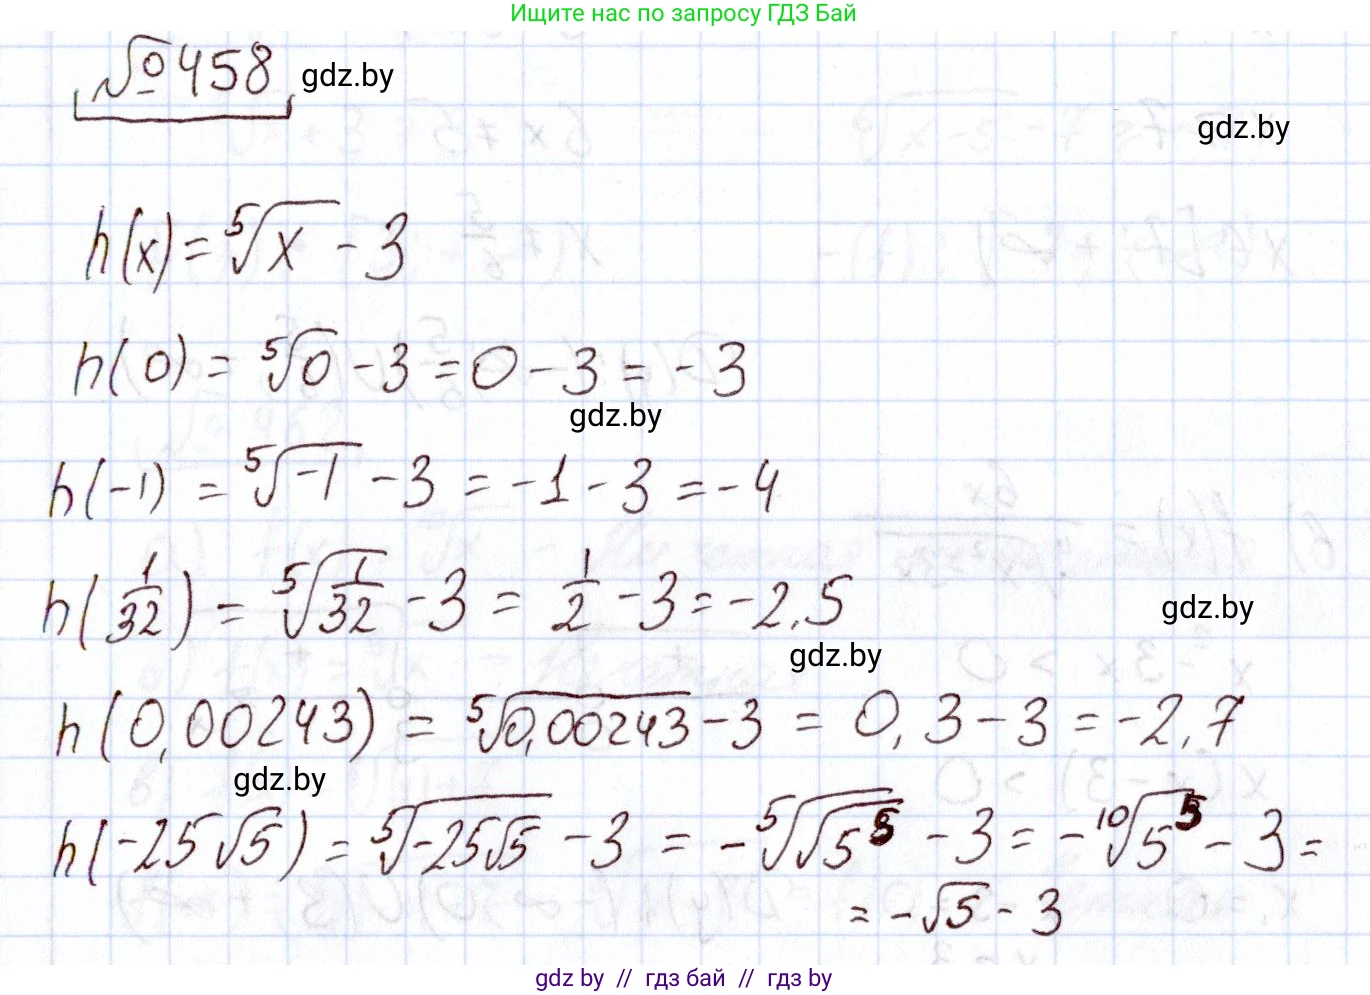 Ищите нас по запросу ГДЗ Бай
№458 gdz.by
gdz.by
h(x) = ⁵√x - 3
h(0) = ⁵√0 - 3 = 0 - 3 = -3
gdz.by
h(-1) = ⁵√-1 - 3 = -1 - 3 = -4
h(1/32) = ⁵√(1/32) - 3 = 1/2 - 3 = -2,5
gdz.by
gdz.by
h(0,00243) = ⁵√0,00243 - 3 = 0,3 - 3 = -2,7
gdz.by
h(-25√5) = ⁵√(-25√5) - 3 = -⁵√(√5⁵) - 3 = -¹⁰√5⁵ - 3 =
= -√5 - 3
gdz by // гдз бай // гдз by